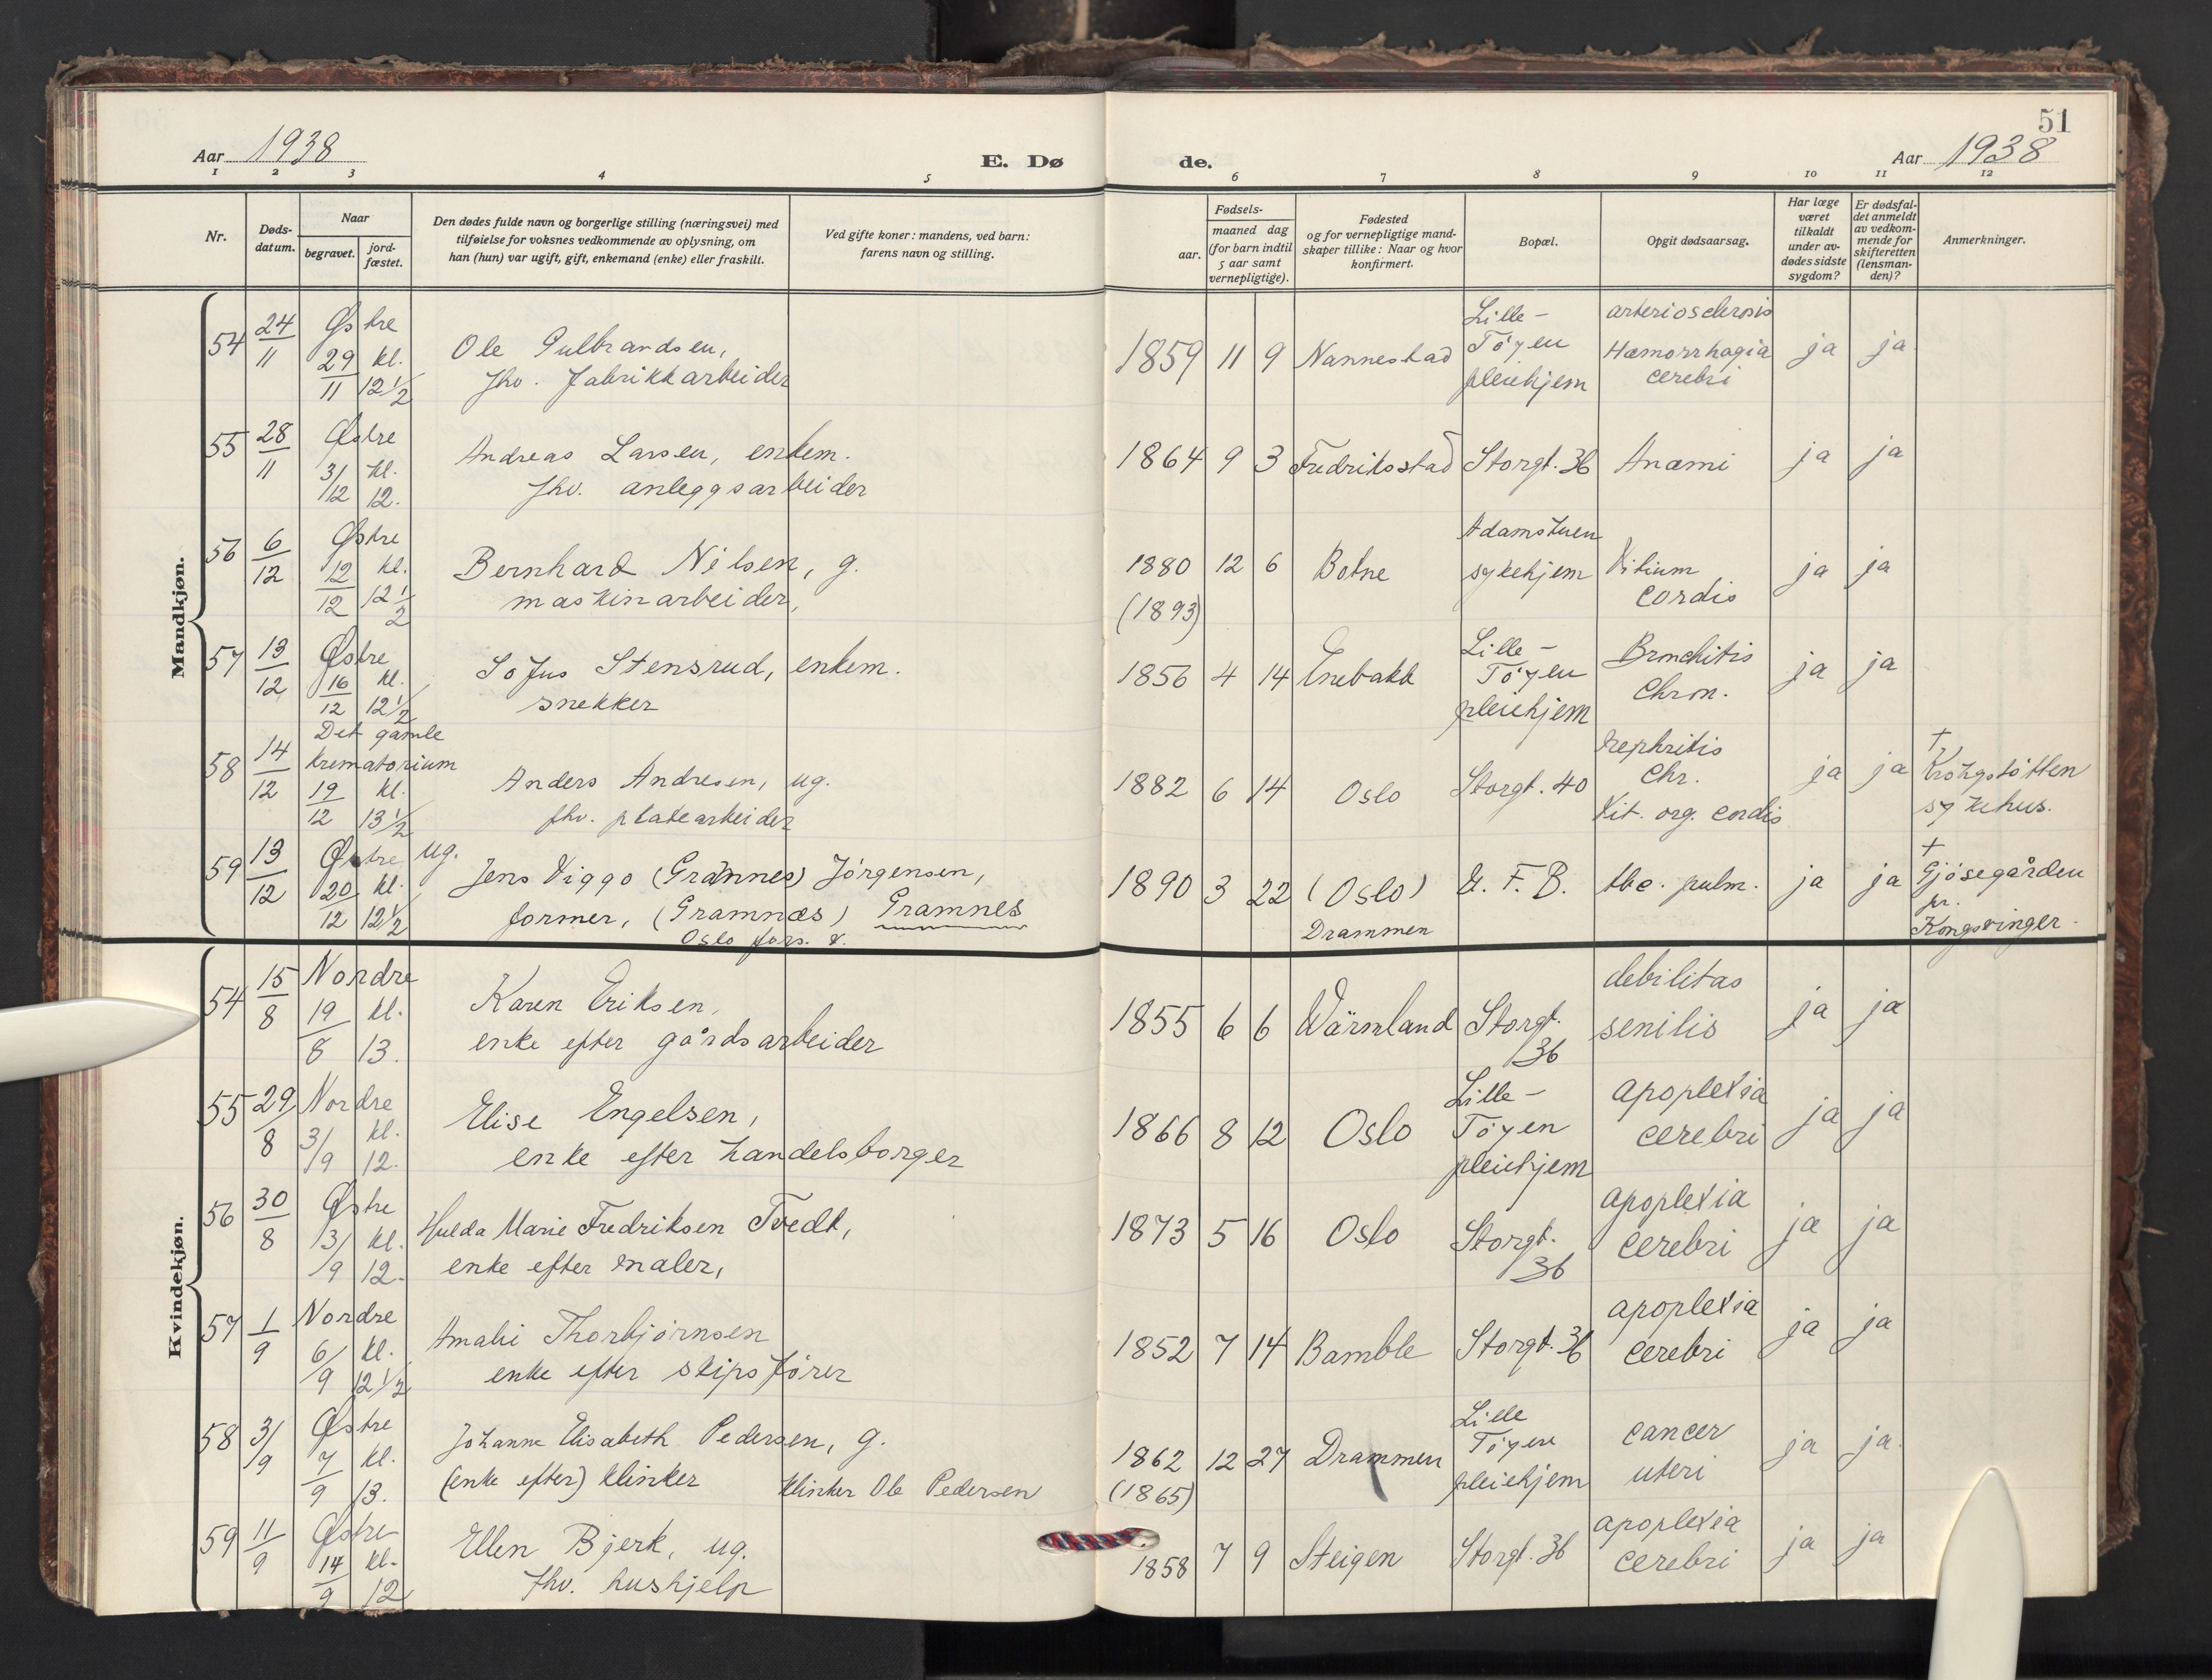 51
Aar 1938 E. Dø de. Aar 1938
1 2 3 4 5 6 7 8 9 10 11 12
Nr.
Døds-
datum.
Naar
begravet.
jord-
fæstet.
Den dødes fulde navn og borgerlige stilling (næringsvei) med
tilføielse for voksnes vedkommende av oplysning, om
han (hun) var ugift, gift, enkemand (enke) eller fraskilt.
Ved gifte koner: mandens, ved barn:
farens navn og stilling.
Fødsels-
aar.
maaned dag
(for barn indtil
5 aar samt
vernepligtige).
Fødested
og for vernepligtige mand-
skaper tillike: Naar og hvor
konfirmert.
Bopæl.
Opgit dødsaarsag.
Har læge
været
tilkaldt
under av-
dødes sidste
sygdom?
Er dødsfal-
det anmeldt
av vedkom-
mende for
skifteretten
(lensman-
den)?
Anmerkninger.
Mandkjøn.
54 24/11 Østre 29/11 kl. 12 1/2
Ole Gulbrandsen,
fhv. fabrikkarbeider
1859 11 9 Nannestad
Lille-
Töyen
pleiehjem
arteriosclerosis
Hæmorrhagia
cerebri
ja ja
55 28/11 Østre 3/12 kl. 12.
Andreas Larsen, enkem.
fhv. anleggsarbeider
1864 9 3 Fredriksstad Storgt. 36 Anæmi ja ja
56 6/12 Østre 12/12 kl. 12 1/2
Bernhard Nilsen, g.
maskinarbeider,
1880 12 6 Botne
(1893)
Adamstuen
sykehjem
Vitium
cordis
ja ja
57 13/12 Østre 16/12 kl. 12 1/2
Sofus Stensrud, enkem.
snekker
1856 4 14 Enebakk
Lille-
Töyen
pleiehjem
Bronchitis
chron.
ja ja
58 14/12 Det gamle
krematorium
19/12 kl. 13 1/2
Anders Andresen, ug.
fhv. platearbeider
1882 6 14 Oslo Storgt. 40
nephritis
chr.
Vit. org. cordis
ja ja
†
Krohgstötten
sykehus.
59 13/12 Østre 20/12 kl. 12 1/2 ug.
Jens Viggo (Grannes) Jörgensen,
former, (Gramnæs) Gramnes
Oslo fors. v.
1890 3 22 (Oslo)
Drammen
U. F. B. tbc. pulm. ja ja
†
Gjøsegården
pr.
Kongsvinger.
Kvindekjøn.
54 15/8 Nordre 19/8 kl. 13.
Karen Eriksen,
enke efter gårdsarbeider
1855 6 6 Wärmland Storgt.
36
debilitas
senilis
ja ja
55 29/8 Nordre 3/9 kl. 12.
Elise Engelsen,
enke efter handelsborger
1866 8 12 Oslo
Lille-
Töyen
pleiehjem
apoplexia
cerebri
ja ja
56 30/8 Østre 3/9 kl. 12.
Hulda Marie Fredriksen Tvedt,
enke efter maler,
1873 5 16 Oslo Storgt.
36
apoplexia
cerebri
ja ja
57 1/9 Nordre 6/9 kl. 12 1/2
Amalie Thorbjørnsen
enke efter skipsfører
1852 7 14 Bamble Storgt. 36
apoplexia
cerebri
ja ja
58 3/9 Østre 7/9 kl. 13.
Johanne Elisabeth Pedersen, g.
(enke efter) klinker klinker Ole Pedersen
1862 12 27 Drammen
(1865)
Lille
Töyen
pleiehjem
cancer
uteri
ja ja.
59 11/9 Østre 14/9 kl. 12
Ellen Bjerk, ug.
fhv. hushjelp
1858 7 9 Steigen Storgt. 36
apoplexia
cerebri
ja ja